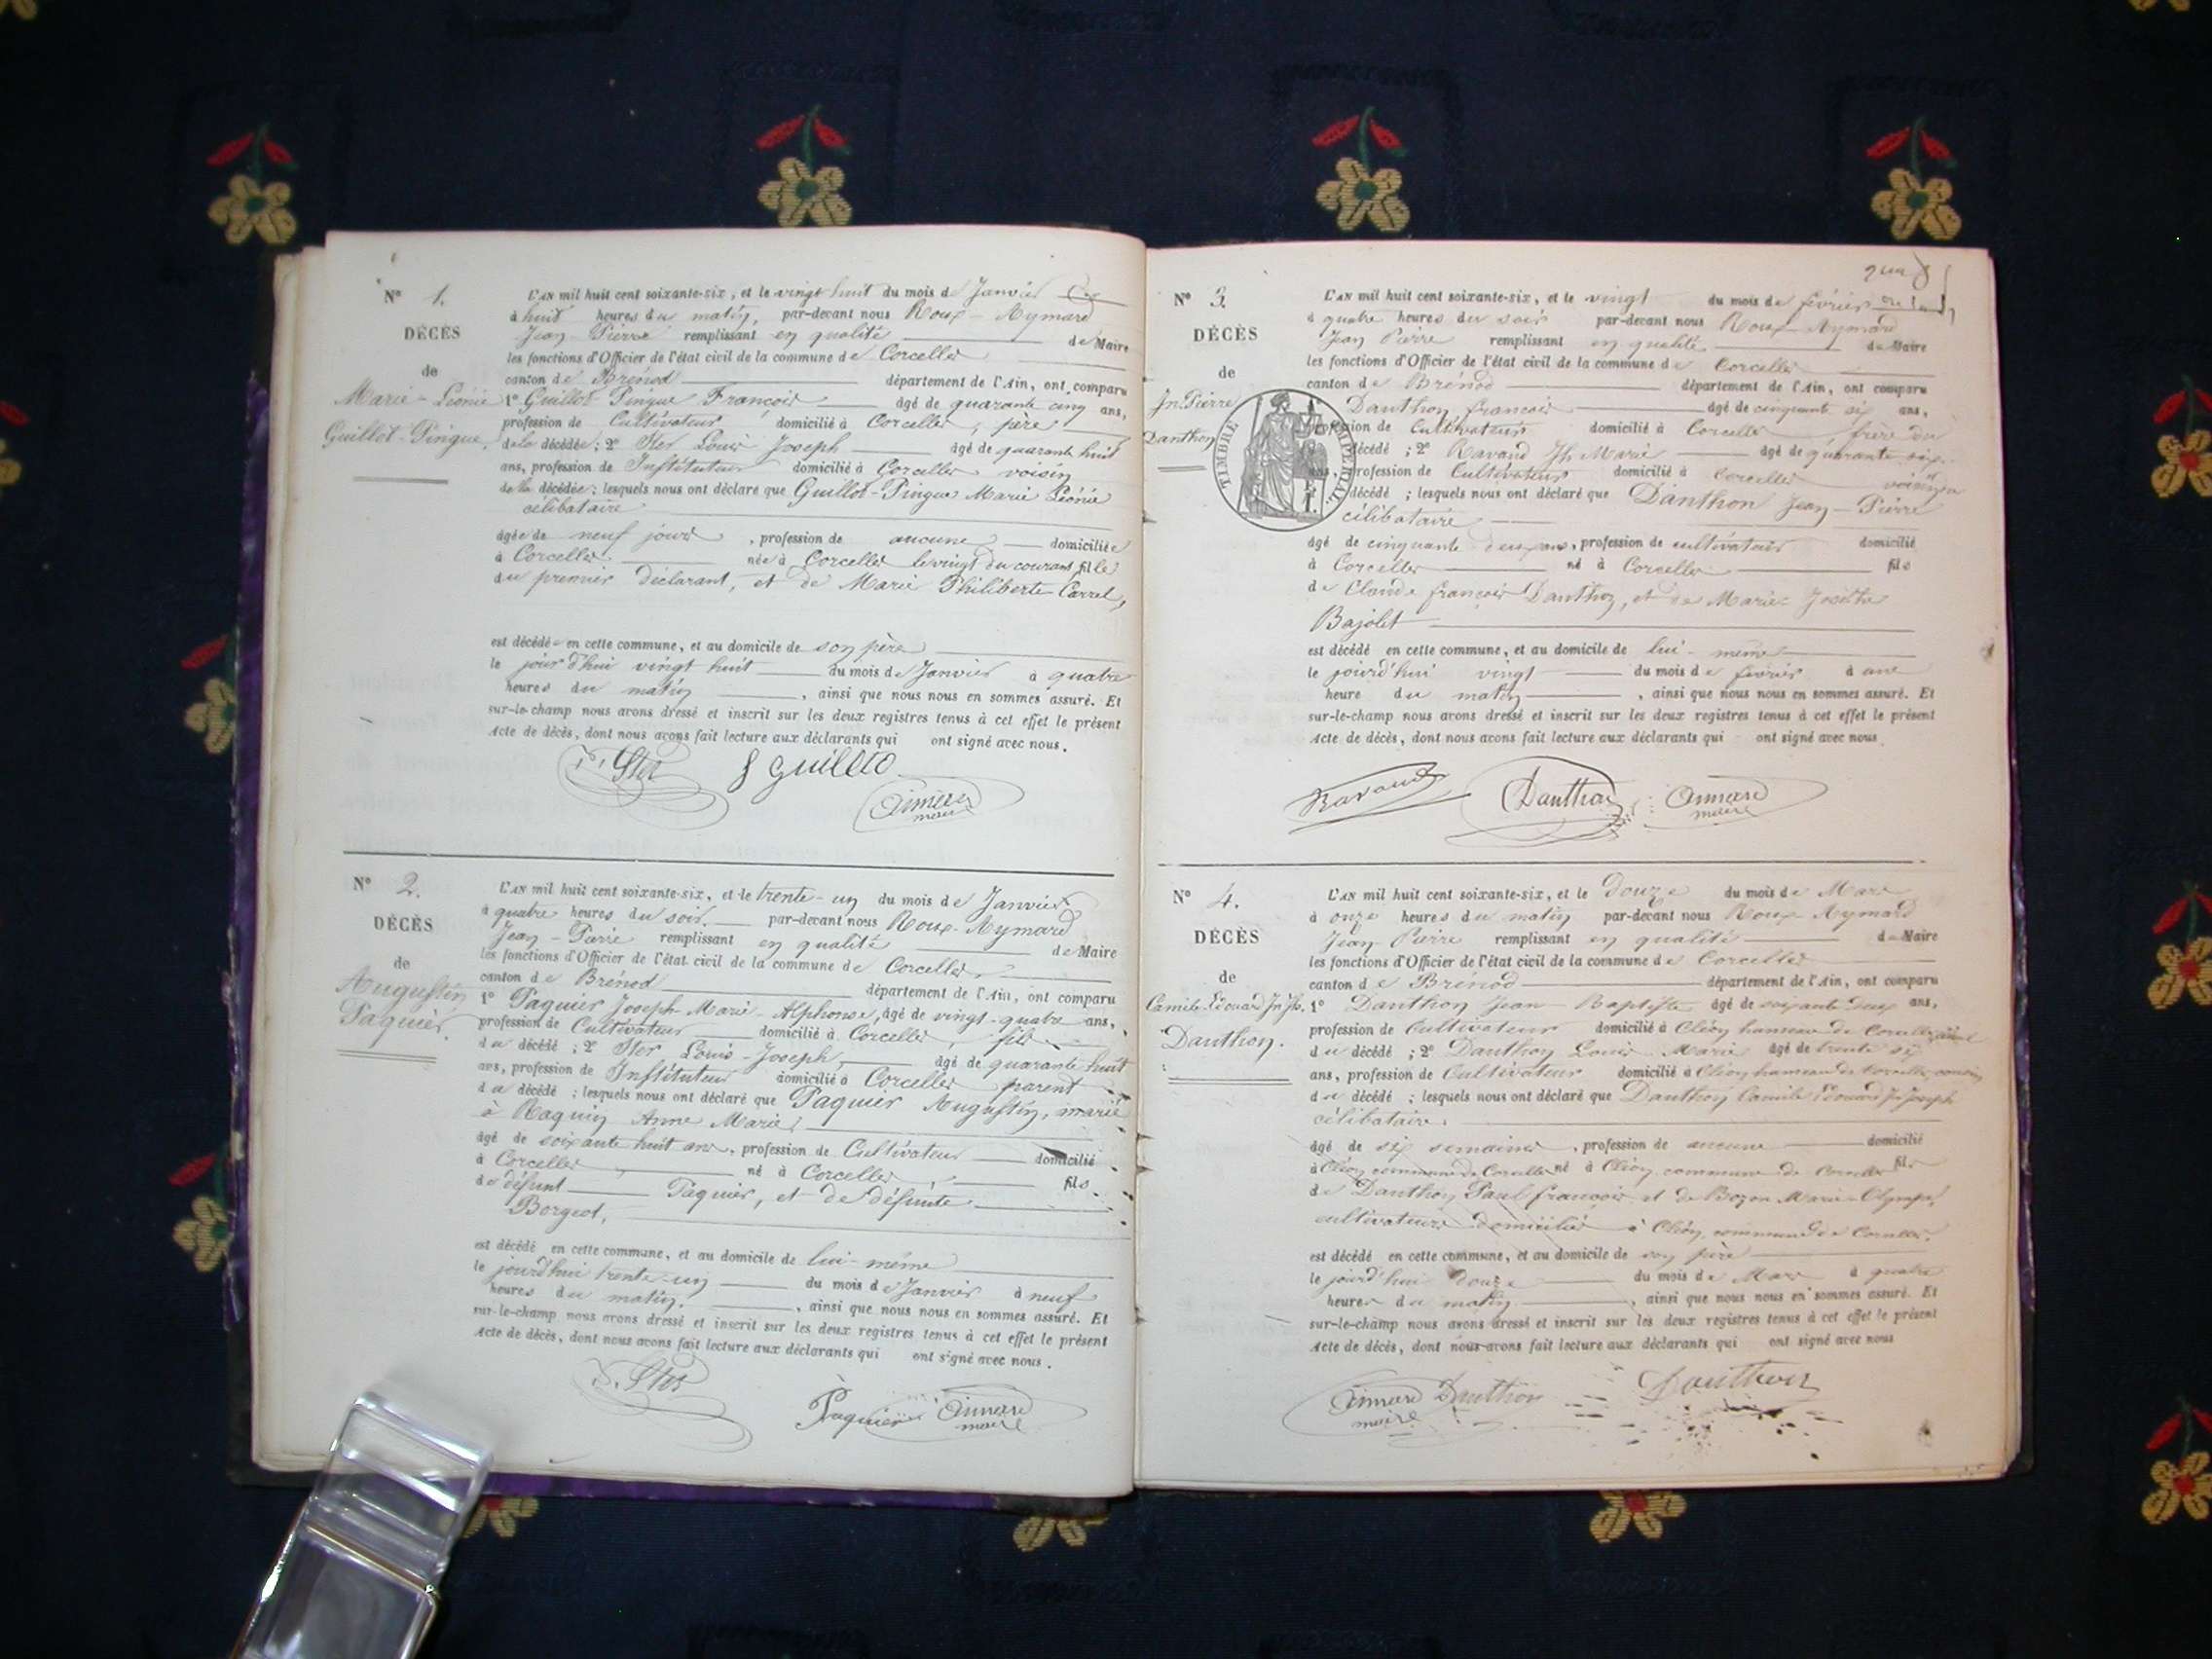 N° 1.
DÉCÈS
de
Marie-Léonie
Guillot-Pingue.
L'AN mil huit cent soixante-six, et le vingt huit du mois de Janvier
à huit heures du matin, par-devant nous Roux-Aymard
Jean-Pierre remplissant en qualité de Maire
les fonctions d'Officier de l'état civil de la commune de Corcelles
canton de Brénod département de l'Ain, ont comparu
1° Guillot-Pingue François âgé de quarante cinq ans,
profession de Cultivateur domicilié à Corcelles, père
de la décédée; 2° Ster Louis Joseph âgé de quarante huit
ans, profession de Instituteur domicilié à Corcelles voisin
de la décédée; lesquels nous ont déclaré que Guillot-Pingue Marie Léonie
célibataire
âgée de neuf jours, profession de aucune domiciliée
à Corcelles. née à Corcelles le vingt du courant, fille
du premier déclarant, et de Marie Philiberte Carrel,
est décédée en cette commune, et au domicile de son père
le jour d'hui vingt huit du mois de Janvier à quatre
heures du matin, ainsi que nous nous en sommes assuré. Et
sur-le-champ nous avons dressé et inscrit sur les deux registres tenus à cet effet le présent
Acte de décès, dont nous avons fait lecture aux déclarants qui ont signé avec nous.
Ster
maire
N° 2.
DÉCÈS
de
Augustin
Paquier.
L'AN mil huit cent soixante-six, et le trente-un du mois de Janvier
à quatre heures du soir. par-devant nous Roux-Aymard
Jean-Pierre remplissant en qualité de Maire
les fonctions d'Officier de l'état civil de la commune de Corcelles.
canton de Brénod département de l'Ain, ont comparu
1° Paquier Joseph-Marie-Alphonse, âgé de vingt-quatre ans,
profession de Cultivateur domicilié à Corcelles, fils
du décédé; 2° Ster Louis-Joseph, âgé de quarante huit
ans, profession de Instituteur domicilié à Corcelles parent
du décédé; lesquels nous ont déclaré que Paquier Augustin, marié
à Raquin Anne Marie,
âgé de soixante huit ans, profession de Cultivateur domicilié
à Corcelles, né à Corcelles, fils
de défunt Paquier, et de défunte
Borgeot,
est décédé en cette commune, et au domicile de lui-même
le jourd'hui trente-un du mois de Janvier à neuf
heures du matin, ainsi que nous nous en sommes assuré. Et
sur-le-champ nous avons dressé et inscrit sur les deux registres tenus à cet effet le présent
Acte de décès, dont nous avons fait lecture aux déclarants qui ont signé avec nous.
Ster
Paquier
maire
N° 3.
DÉCÈS
de
Jn. Pierre
Danthon
TIMBRE IMPÉRIAL.
L'AN mil huit cent soixante-six, et le vingt du mois de février
à quatre heures du soir par-devant nous Roux-Aymard
Jean Pierre remplissant en qualité de Maire
les fonctions d'Officier de l'état civil de la commune de Corcelles
canton de Brénod département de l'Ain, ont comparu
Danthon françois âgé de cinquante six ans,
profession de Cultivateur domicilié à Corcelles frère du
décédé; 2° Ravaud Jh Marie âgé de quarante six
ans, profession de Cultivateur domicilié à Corcelles voisin
décédé; lesquels nous ont déclaré que Danthon Jean-Pierre
célibataire
âgé de cinquante-deux ans, profession de cultivateur domicilié
à Corcelles né à Corcelles fils
de Claude françois Danthon, et de Marie-Josèthe
Bajolet
est décédé en cette commune, et au domicile de lui-même
le jourd'hui vingt du mois de février à une
heure du matin, ainsi que nous nous en sommes assuré. Et
sur-le-champ nous avons dressé et inscrit sur les deux registres tenus à cet effet le présent
Acte de décès, dont nous avons fait lecture aux déclarants qui ont signé avec nous.
Ravaud Danthon
maire
N° 4.
DÉCÈS
de
Camile Edouard Jn Jh.
Danthon.
L'AN mil huit cent soixante-six, et le douze du mois de Mars
à onze heures du matin par-devant nous Roux-Aymard
Jean-Pierre remplissant en qualité de Maire
les fonctions d'Officier de l'état civil de la commune de Corcelles
canton de Brénod département de l'Ain, ont comparu
1° Danthon Jean-Baptiste âgé de soixante deux ans,
profession de Cultivateur domicilié à Cléon hameau de Corcelles
du décédé; 2° Danthon Louis Marie âgé de trente six
ans, profession de Cultivateur domicilié à Cléon hameau de Corcelles, cousin
du décédé; lesquels nous ont déclaré que Danthon Camile Edouard Jn Joseph
célibataire.
âgé de six semaines, profession de aucune domicilié
à Cléon commune de Corcelles né à Cléon commune de Corcelles fils
de Danthon Paul françois et de Bozon Marie-Olympe,
cultivateurs domiciliés à Cléon, commune de Corcelles.
est décédé en cette commune, et au domicile de son père
le jourd'hui douze du mois de Mars à quatre
heures du matin, ainsi que nous nous en sommes assuré. Et
sur-le-champ nous avons dressé et inscrit sur les deux registres tenus à cet effet le présent
Acte de décès, dont nous avons fait lecture aux déclarants qui ont signé avec nous
Danthon Danthon
maire